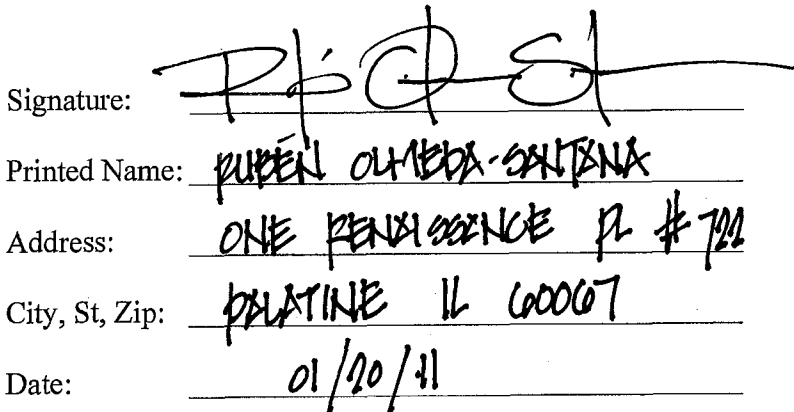 Signature:
Printed Name: RUBÉN OLMEDA-SANTANA
Address: ONE RENAISSANCE PL # 722
City, St, Zip: PALATINE IL 60067
Date: 01/20/11